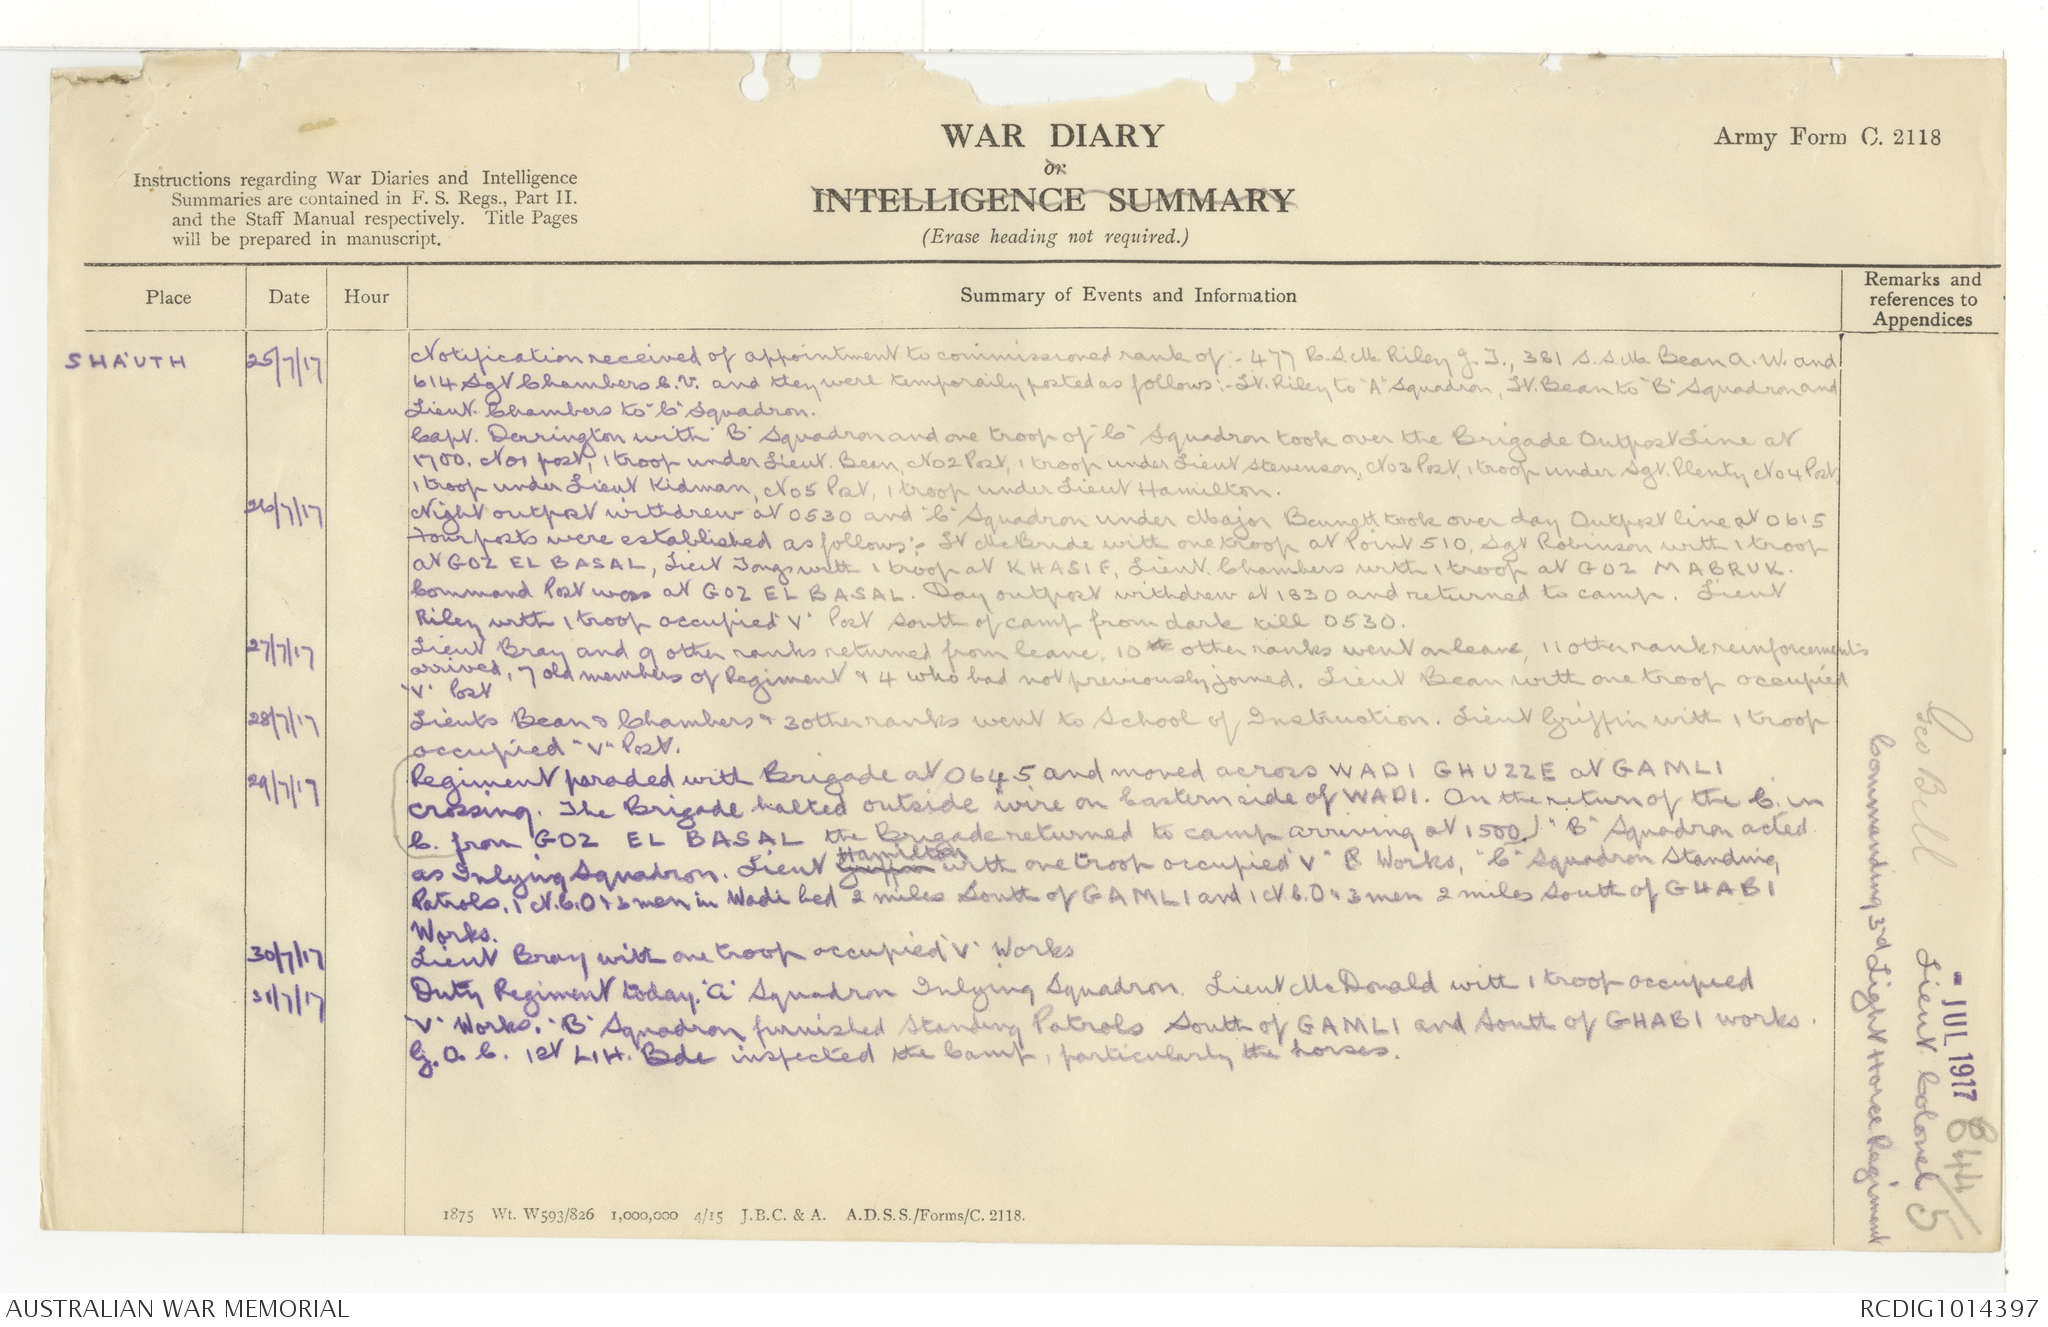 WAR DIARY
or
INTELLIGENCE SUMMARY
(Erase heading not required.)
Army Form C. 2118
Instructions regarding War Diaries and Intelligence
Summaries are contained in F. S. Regs., Part II.
and the Staff Manual respectively. Title Pages
will be prepared in manuscript.
Place
Date
Hour
Summary of Events and Information
Remarks and
references to
Appendices
SHAUTH
25/7/17
Notification received of appointment to commissioned rank of :- 477 R.S.M. Riley G. J., 381 S.S.M. Bean A. W. and
614 Sgt Chambers C.V. and they were temporaily posted as follows:- Lt. Riley to "A" Squadron, Lt. Bean to "B" Squadron and
Lieut. Chambers to "C" Squadron.
Capt. Derrington with "B" Squadron and one troop of "C" Squadron took over the Brigade Outpost Line at
1700. No1 post, 1 troop under Lieut. Bean, No2 Post, 1 troop under Lieut Stevenson, No3 Post, 1 troop under Sgt. Plenty No4 Post,
1 troop under Lieut Kidman, No5 Post, 1 troop under Lieut Hamilton.
26/7/17
Night outpost withdrew at 0530 and "C" Squadron under Major Bennett took over day Outpost line at 0615
Four posts were established as follows:- Lt McBride with one troop at Point 510, Sgt Robinson with 1 troop
at GOZ EL BASAL, Lieut Tongs with 1 troop at KHASIF, Lieut. Chambers with 1 troop at GOZ MABRUK.
Command Post was at GOZ EL BASAL. Day outpost withdrew at 1830 and returned to camp. Lieut
Riley with 1 troop occupied "V" Post south of camp from dark till 0530.
27/7/17
Lieut Bray and 9 other ranks returned from leave. 10 other ranks went on leave, 11 other rank reinforcements
arrived, 7 old members of Regiment & 4 who had not previously joined. Lieut Bean with one troop occupied
"V" Post
28/7/17
Lieuts Bean & Chambers & 3 other ranks went to School of Instruction. Lieut Griffin with 1 troop
occupied "V" Post.
29/7/17
Regiment paraded with Brigade at 0645 and moved across WADI GHUZZE at GAMLI
crossing. The Brigade halted outside wire on Eastern side of WADI. On the return of the C. in
C. from GOZ EL BASAL the Brigade returned to camp arriving at 1500. "B" Squadron acted
Hamilton
as Inlying Squadron. Lieut Griffin with one troop occupied "V" Works, "C" Squadron Standing
Patrols, 1 N.C.O & 3 men in Wadi bed 2 miles South of GAMLI and 1 N.C.O & 3 men 2 miles South of GHABI
Works.
30/7/17
Lieut Bray with one troop occupied "V" Works
31/7/17
Duty Regiment today. "A" Squadron Inlying Squadron. Lieut McDonald with 1 troop occupied
"V" Works. "B" Squadron furnished Standing Patrols South of GAMLI and South of GHABI works.
G. O. C. 1st L.H. Bde inspected the Camp, particularly the horses.
Geo Bell Lieut. Colonel
Commanding 3rd Light Horse Regiment
- JUL 1917
844/5
1875 Wt. W593/826 1,000,000 4/15 J.B.C. & A. A.D.S.S./Forms/C. 2118.
AUSTRALIAN WAR MEMORIAL
RCDIG1014397